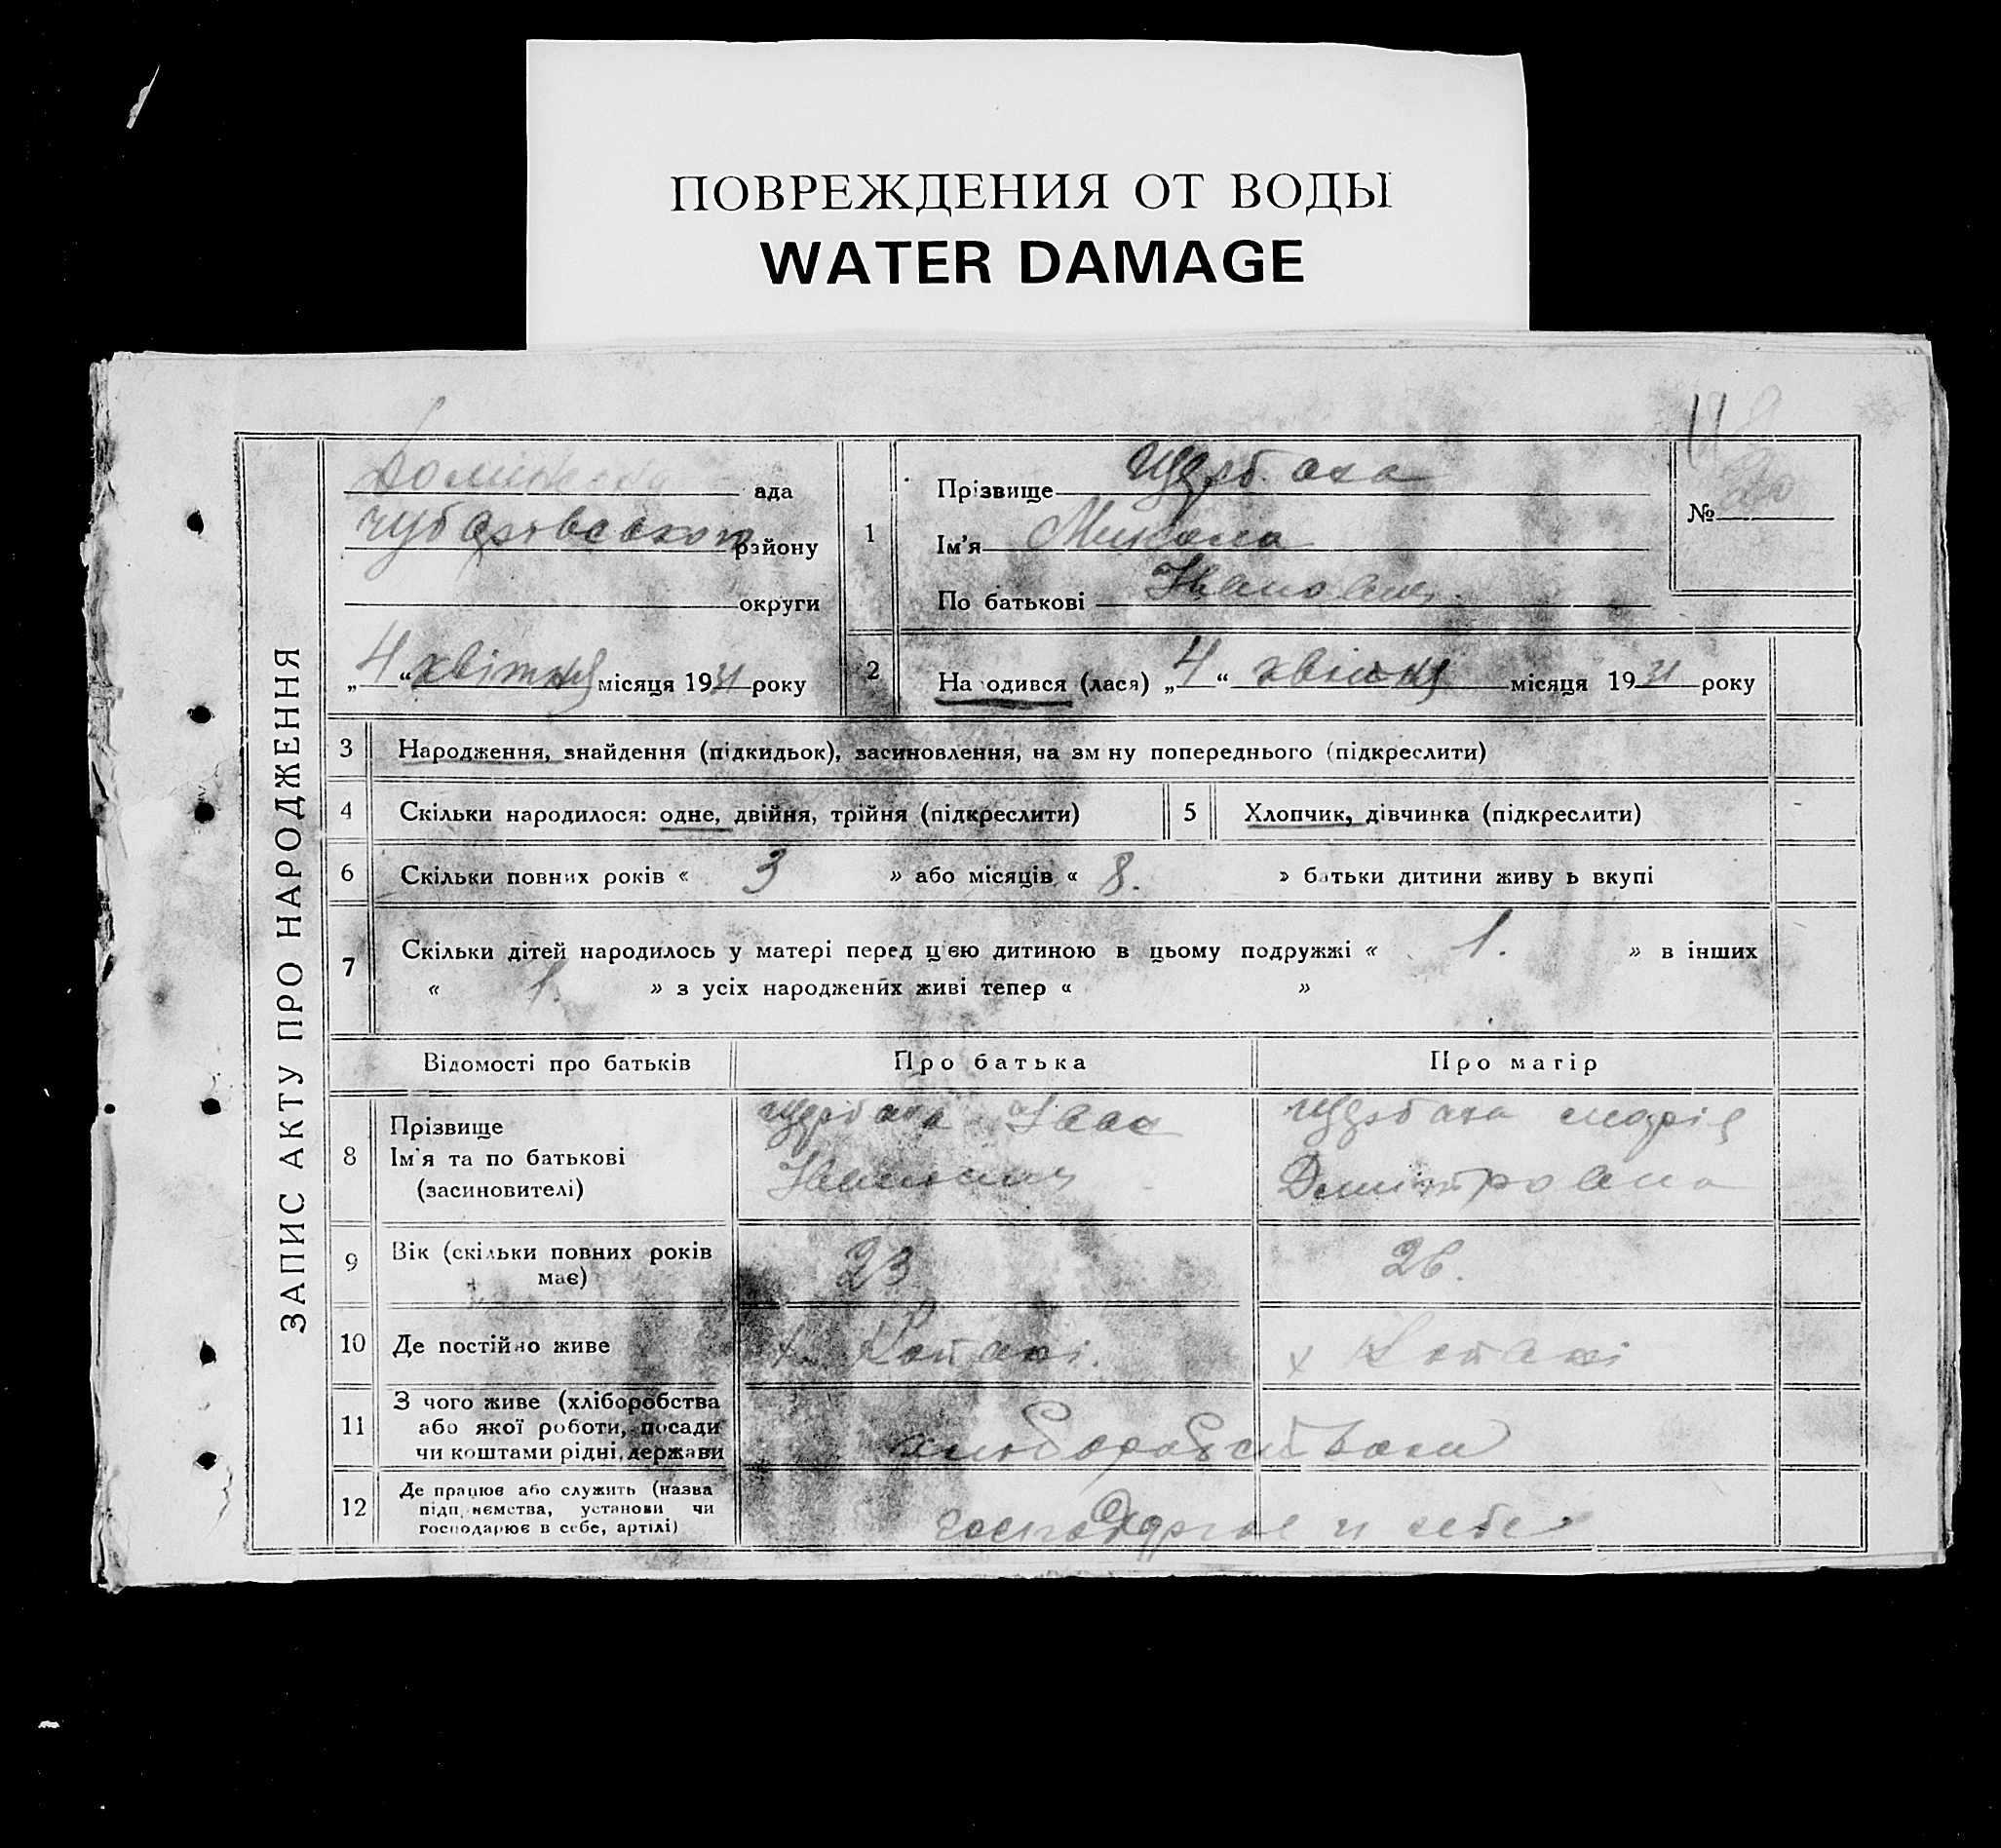 ПОВРЕЖДЕНИЯ ОТ ВОДЫ
WATER DAMAGE
ЗАПИС АКТУ ПРО НАРОДЖЕННЯ
ада
району
округи
„4“ квітня місяця 1931 року
№
1 Прізвище Щербака
Ім'я Микола
По батькові Іванович
2 На одився (лася) „4“ квітня місяця 1931 року
3 Народження, знайдення (підкидьок), засиновлення, на зм ну попереднього (підкреслити)
4 Скільки народилося: одне, двійня, трійня (підкреслити)
5 Хлопчик, дівчинка (підкреслити)
6 Скільки повних років « 3 » або місяців « 8. » батьки дитини живу ь вкупі
7 Скільки дітей народилось у матері перед цією дитиною в цьому подружжі « 1. » в інших
« 1. » з усіх народжених живі тепер « »
Відомості про батьків Про батька Про матір
8 Прізвище
Ім'я та по батькові
(засиновителі)
Щербака Іван
Іванович
Щербака Марія
Демитровна
9 Вік (скільки повних років
має)
23
26.
10 Де постійно живе
х. Копані.
х Копані
11 З чого живе (хліборобства
або якої роботи, посади
чи коштами рідні, держави
12 Де працює або служить (назва
підп иємства, установи чи
господарює в себе, артілі)
господарює и себе